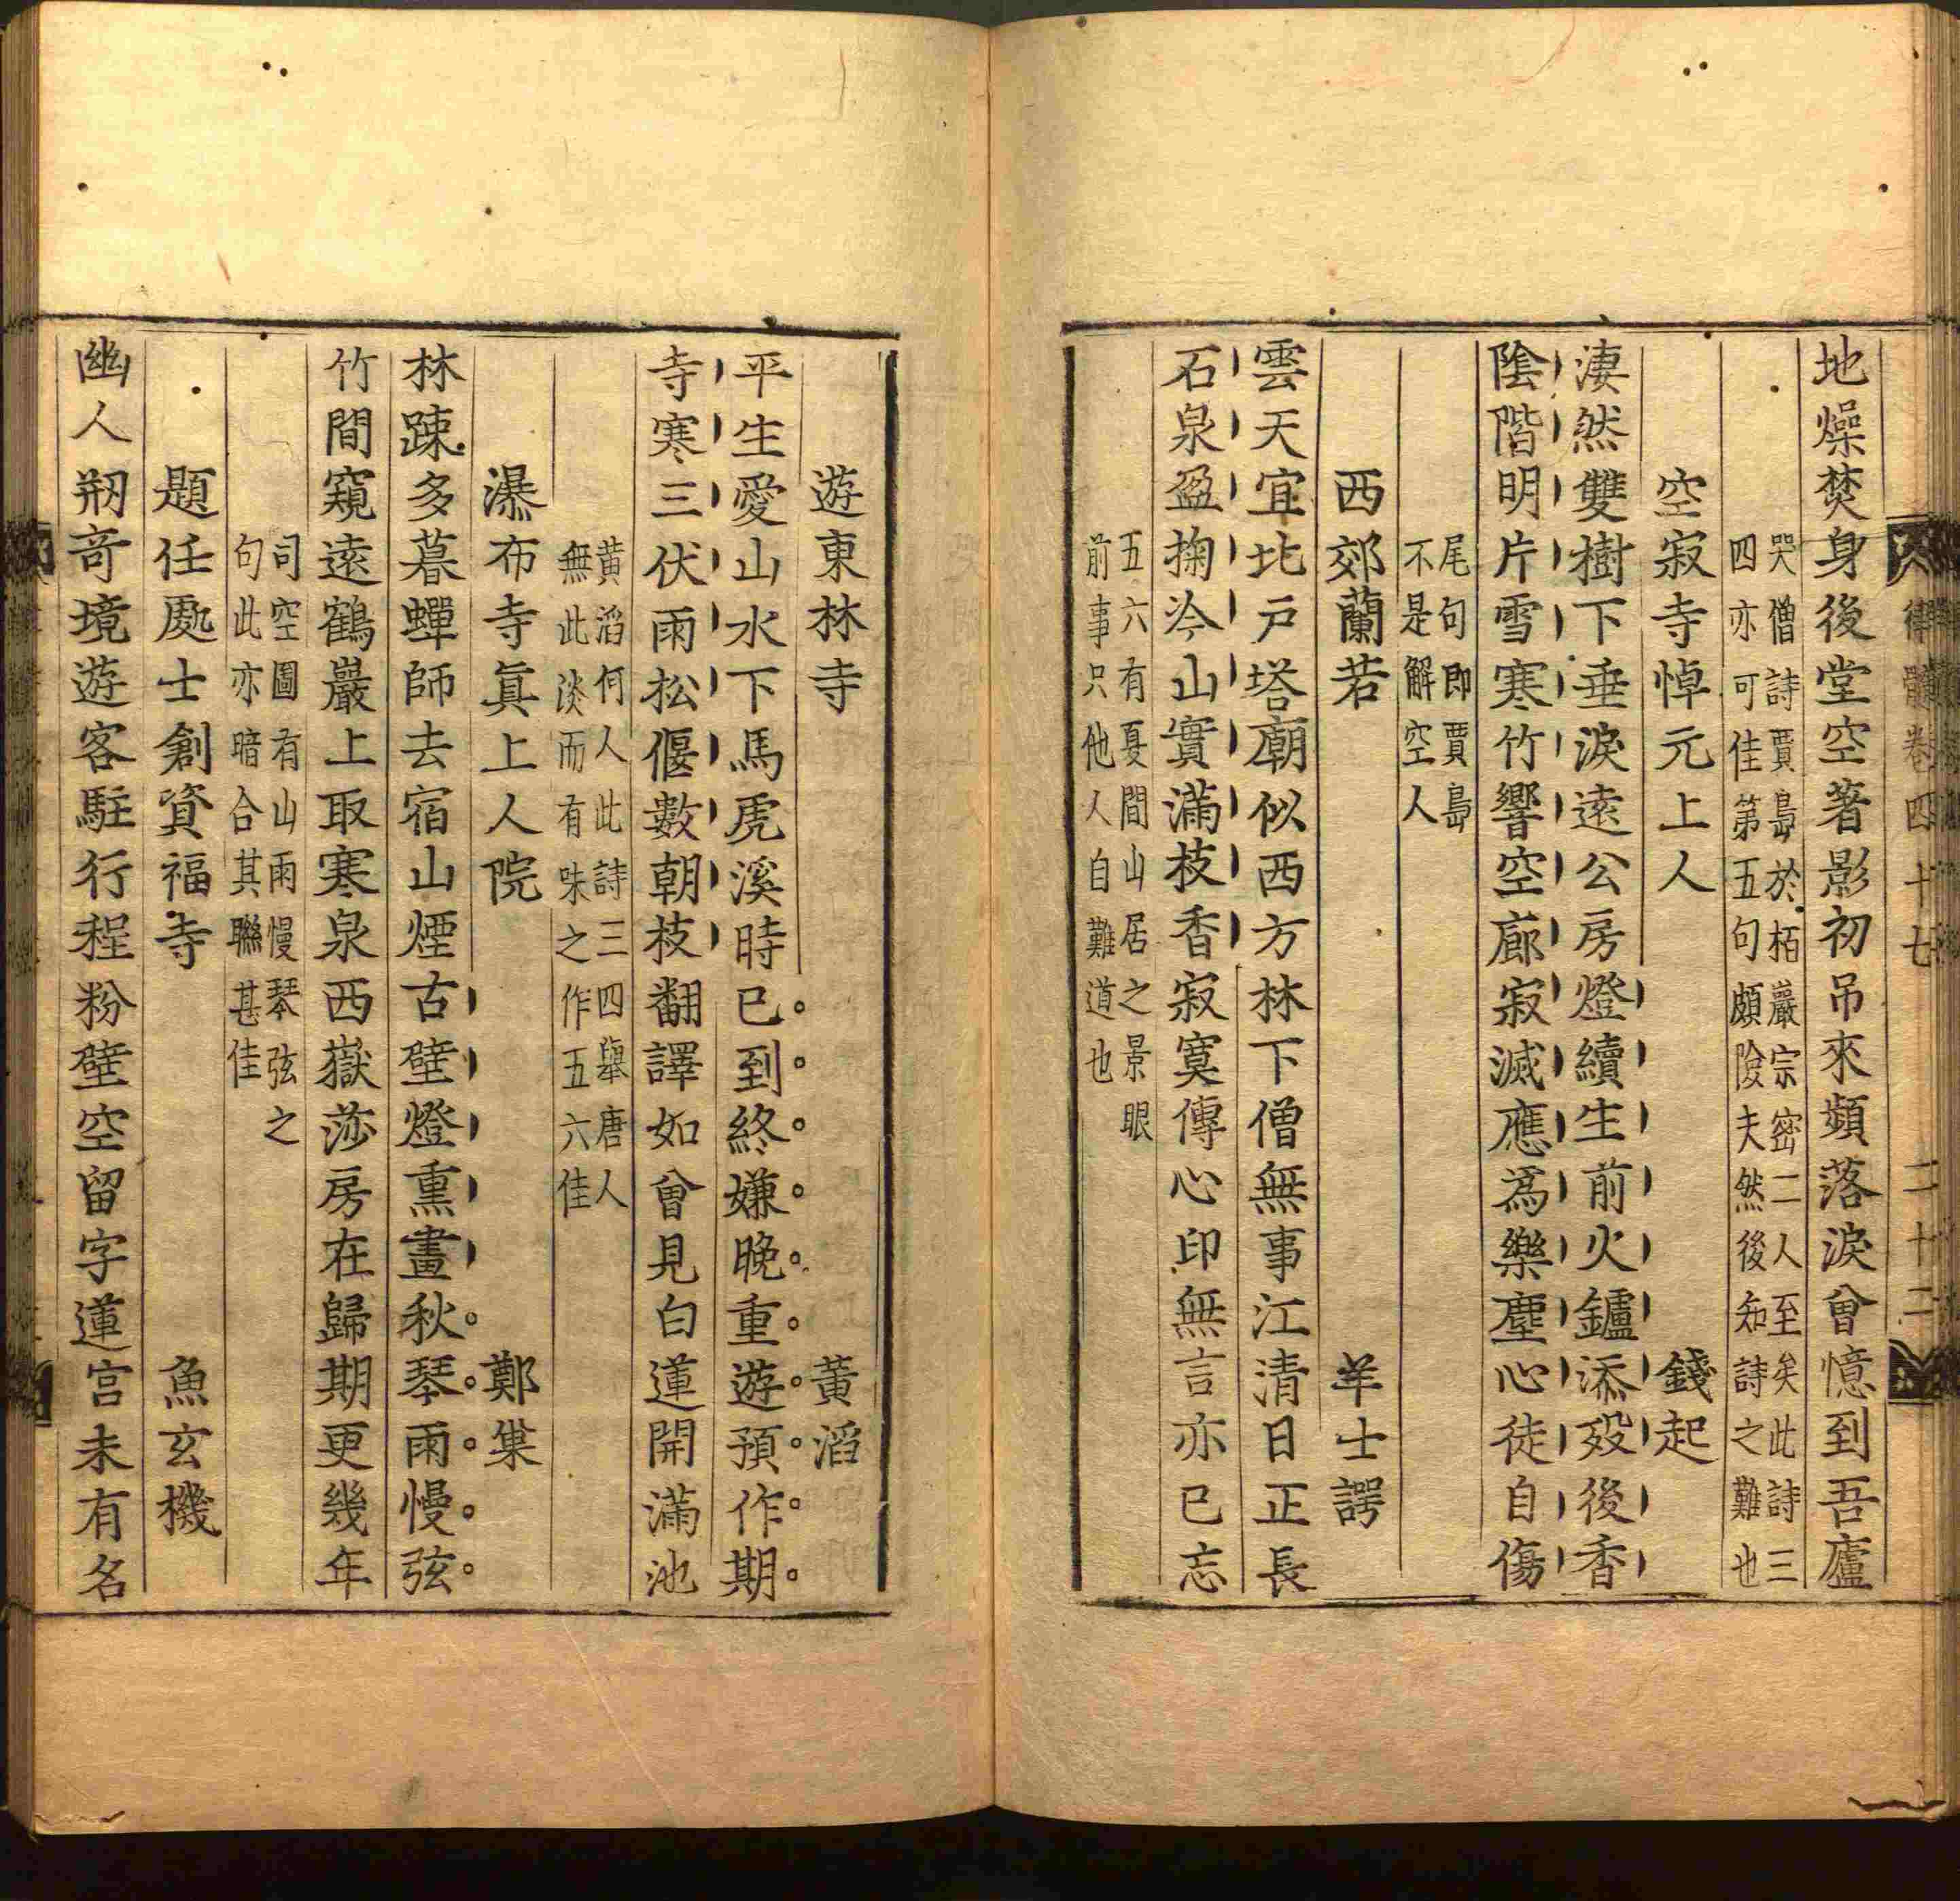 律體卷四十七　二十二
地燥焚身後堂空著影初吊來頻落淚曾憶到吾廬
哭僧詩賈島於栢巖宗密二人至矣此詩三
四亦可佳第五句頗險夫然後知詩之難也
空寂寺悼元上人　錢起
淒然雙樹下垂淚遠公房燈續生前火鑪添歿後香
陰階明片雪寒竹響空廊寂滅應爲樂塵心徒自傷
尾句即賈島
不是解空人
西郊蘭若　羊士諤
雲天宜北戶塔廟似西方林下僧無事江清日正長
石泉盈掬冷山實滿枝香寂寞傳心印無言亦已忘
五六有夏間山居之景眼
前事只他人自難道也
遊東林寺　黃滔
平生愛山水下馬虎溪時已到終嫌晚重遊預作期
寺寒三伏雨松偃數朝枝翻譯如曾見白蓮開滿池
黃滔何人此詩三四舉唐人
無此淡而有味之作五六佳
瀑布寺眞上人院　鄭巢
林踈多暮蟬師去宿山煙古壁燈熏畫秋琴雨慢弦
竹間窺遠鶴巖上取寒泉西嶽莎房在歸期更幾年
司空圖有山雨慢琴弦之
句此亦暗合其聯甚佳
題任處士創資福寺　魚玄機
幽人剏奇境遊客駐行程粉壁空留字蓮宮未有名